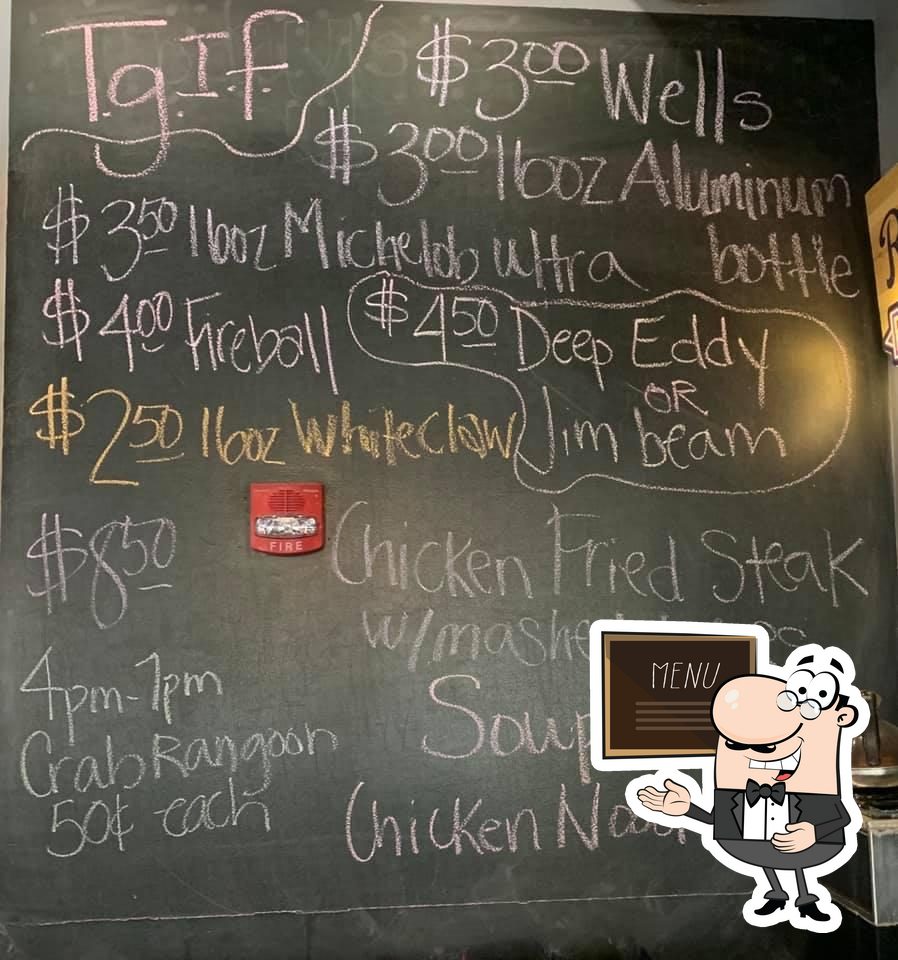 T.g.I.F.
$3.00 Wells
$3.00 16oz Aluminum bottle
$3.50 16oz Michelob ultra
$4.00 Fireball
$4.50 Deep Eddy
OR
Jim beam
$2.50 16oz Whiteclaw
FIRE
$8.50 Chicken Fried Steak
w/mashed
4pm-7pm
Crab Rangoon
50¢ each
Soup
Chicken
MENU